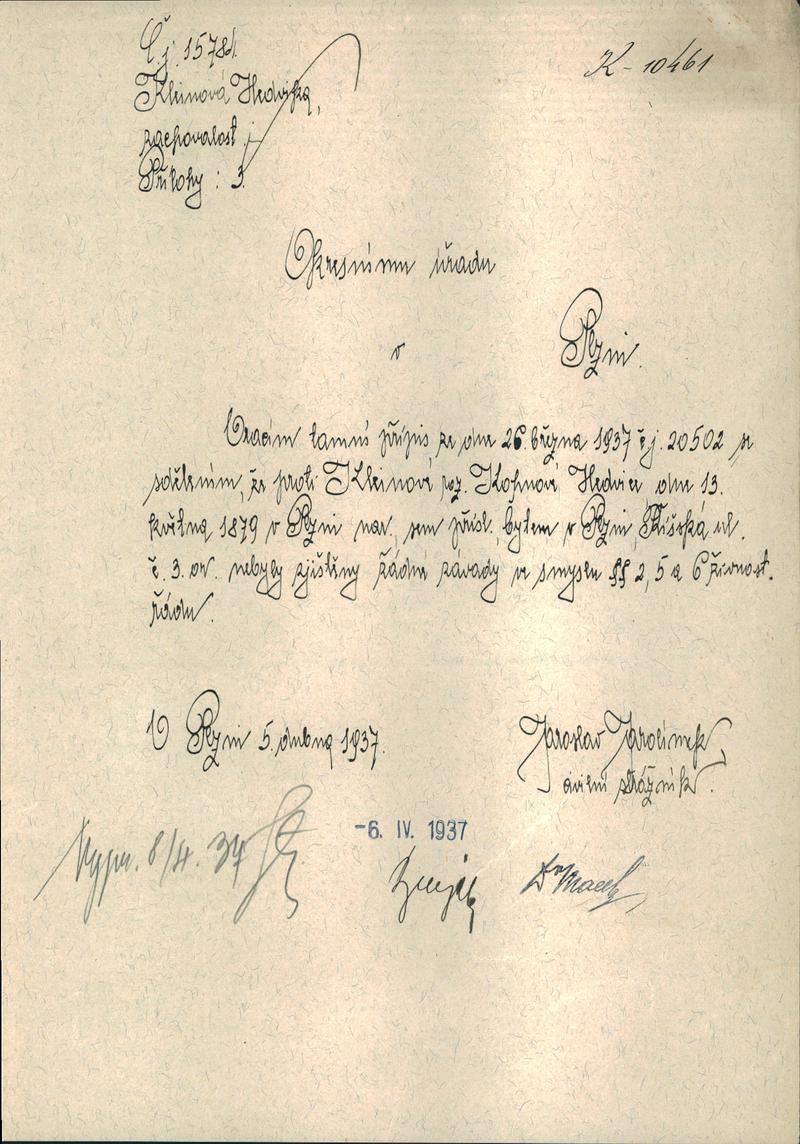 Č.j. 1578/1.
K - 10461
Kleinová Hedvika,
zachovalost.
Přílohy : 3.
Okresnímu úřadu
v Plzni.
Vracím tamní přípis ze dne 26. března 1937 č.j. 20502 se
sdělením, že proti Kleinové roz. Kohnové Hedvice dne 13.
května 1879 v Plzni nar., sem přísl., bytem v Plzni, ul.
č. 3. or. nebyly zjištěny žádné závady ve smyslu §§ 2, 5 a 6 živnost.
řádu.
V Plzni 5. dubna 1937.
Jaroslav Jarolímek,
civilní strážník.
-6. IV. 1937
Vypr. 8/4. 37
Dr Macek